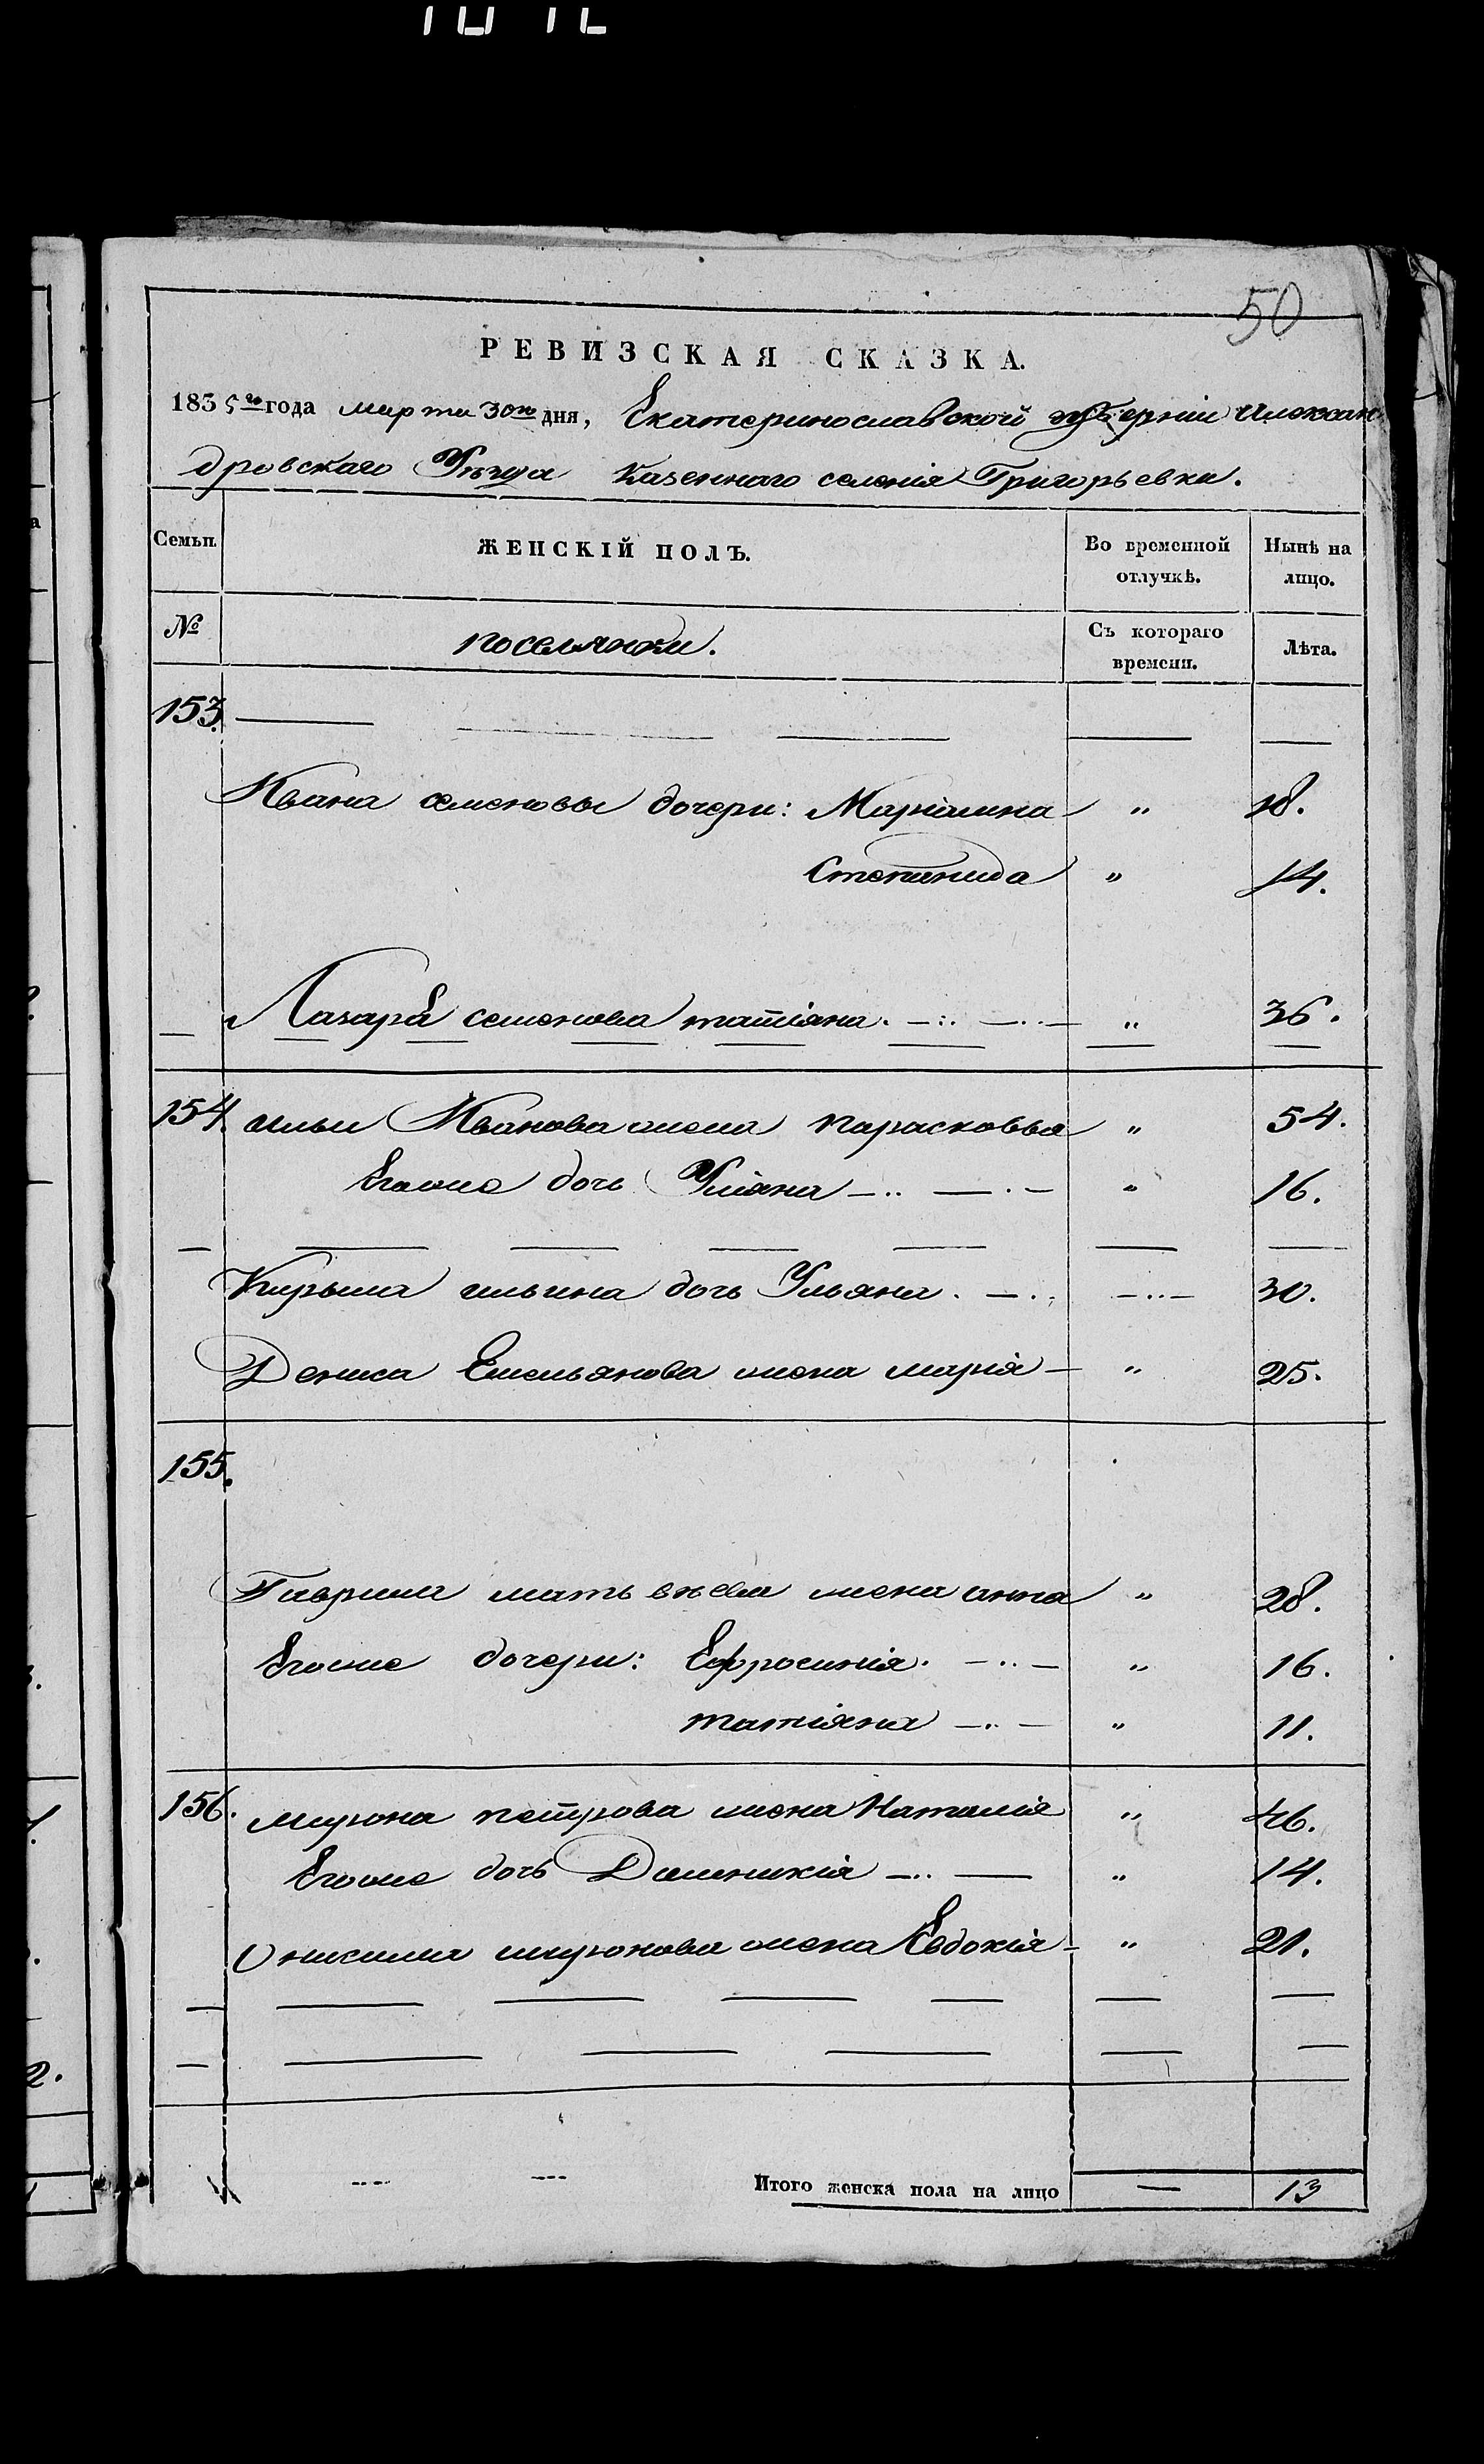 50
РЕВИЗСКАЯ СКАЗКА.
1835го года марта 30го дня, Екатеринославской губерніи Алексан
дровскаго Уѣзда Казенного селенія Григорьевки.
Семьи. ЖЕНСКІЙ ПОЛЪ. Во временной отлучкѣ. Нынѣ на лицо.
№ поселянки. Съ котораго времени. Лѣта.
153. — — — — —
Ивана семеновы дочери: Маріамна " 18.
Степанида " 14.
Лазаря семенова татіяна. " 36.
154. ильи Иванова жена Парасковья " 54.
Егоже дочь Уліяна " 16.
— — — — — — —
Кирыла ильина дочь Ульяна. 30.
Дениса Емельянова жена марія " 25.
155.
Гаврила жена анна " 28.
Егоже дочери: Ефросинія. " 16.
татіяна " 11.
156. мирона петрова жена Наталія " 46.
Егоже дочь Доменикія " 14.
Онисима миронова жена Евдокія " 21.
— — — — — — —
— — — — — —
Итого женска пола на лицо — 13